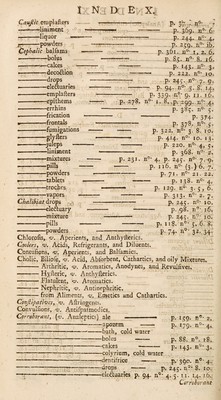 INDEX.
Caustic emplasters — p. 
— liniment — p. 369. nº 6.
— liquor — p. 244. nº 4.
— powders — p. 259. nº 16.
Cephalic balsams — p. 361. nº 1, 2, 6.
— bolus — p. 85. nº 8. 16.
— cakes — p. 143. nº 3.
— decoction — p. 222. nº 10.
— drops — p. 245. nº 7, 9.
— electuaries — p. 94. nº 5. 8. 14.
— emplasters — p. 339. nº 9. 11. 16.
— epithems — p. 278. nº 1. 8. p. 299. nº
— errhins — p. 385. nº 5.
— frication — p. 374.
— frontals — p. 378. nº
— fumigations — p. 322. nº 3. 8. 10.
— glysters — p. 414. nº 10. 13.
— juleps — p. 220. nº 4, 5.
— liniment — p. 368. nº
— mixtures — p. 231. nº 4. p. 245. nº 7, 9.
— pills — p. 116. nº 5.
— powders — p. 71. nº 21. 22.
— tablets — p. 138. nº 4.
— troches — p. 129. nº 3. 5, 6.
— vapors — p. 312. nº 2.
Chalibeat drops — p. 245. nº 10.
— electuary — p. 98. nº 16.
— mixture — p. 245. nº 10.
— pills — p. 118. nº 5. 6. 8.
— powders — p. 74. nº 32. 34.
Chlorosis, v. Aperients, and Anthysterics.
Coolers, v. Acids, Refrigerants, and Diluents.
Concoctions, v. Aperients, and Balsamics.
Cholic, Bilious, v. Acid, Absorbent, Cathartics, and oily Mixtures.
— Arthritic, v. Aromatics, Anodynes, and Revulsives.
— Hysteric, v. Anthysterics.
— Flatulent, v. Aromatics.
— Nephritic, v. Antinephritic.
— from Aliments, v. Emetics and Cathartics.
Constipatives, v. Astringents.
Convulsions, v. Antispasmodics.
Corroborant, (v. Antiseptic) ale — p. 159. nº 2.
— apozem — p. 179. nº 4.
— bath, cold water
— bolus — p. 88. nº 18.
— cakes — p. 143. nº 3.
— colyrium, cold water
— dentifrice — p. 390. nº 4.
— drops — p. 245. nº 8. 10.
— electuaries p. 94. nº 4. 5. 11. 14. 16.
Corroborant